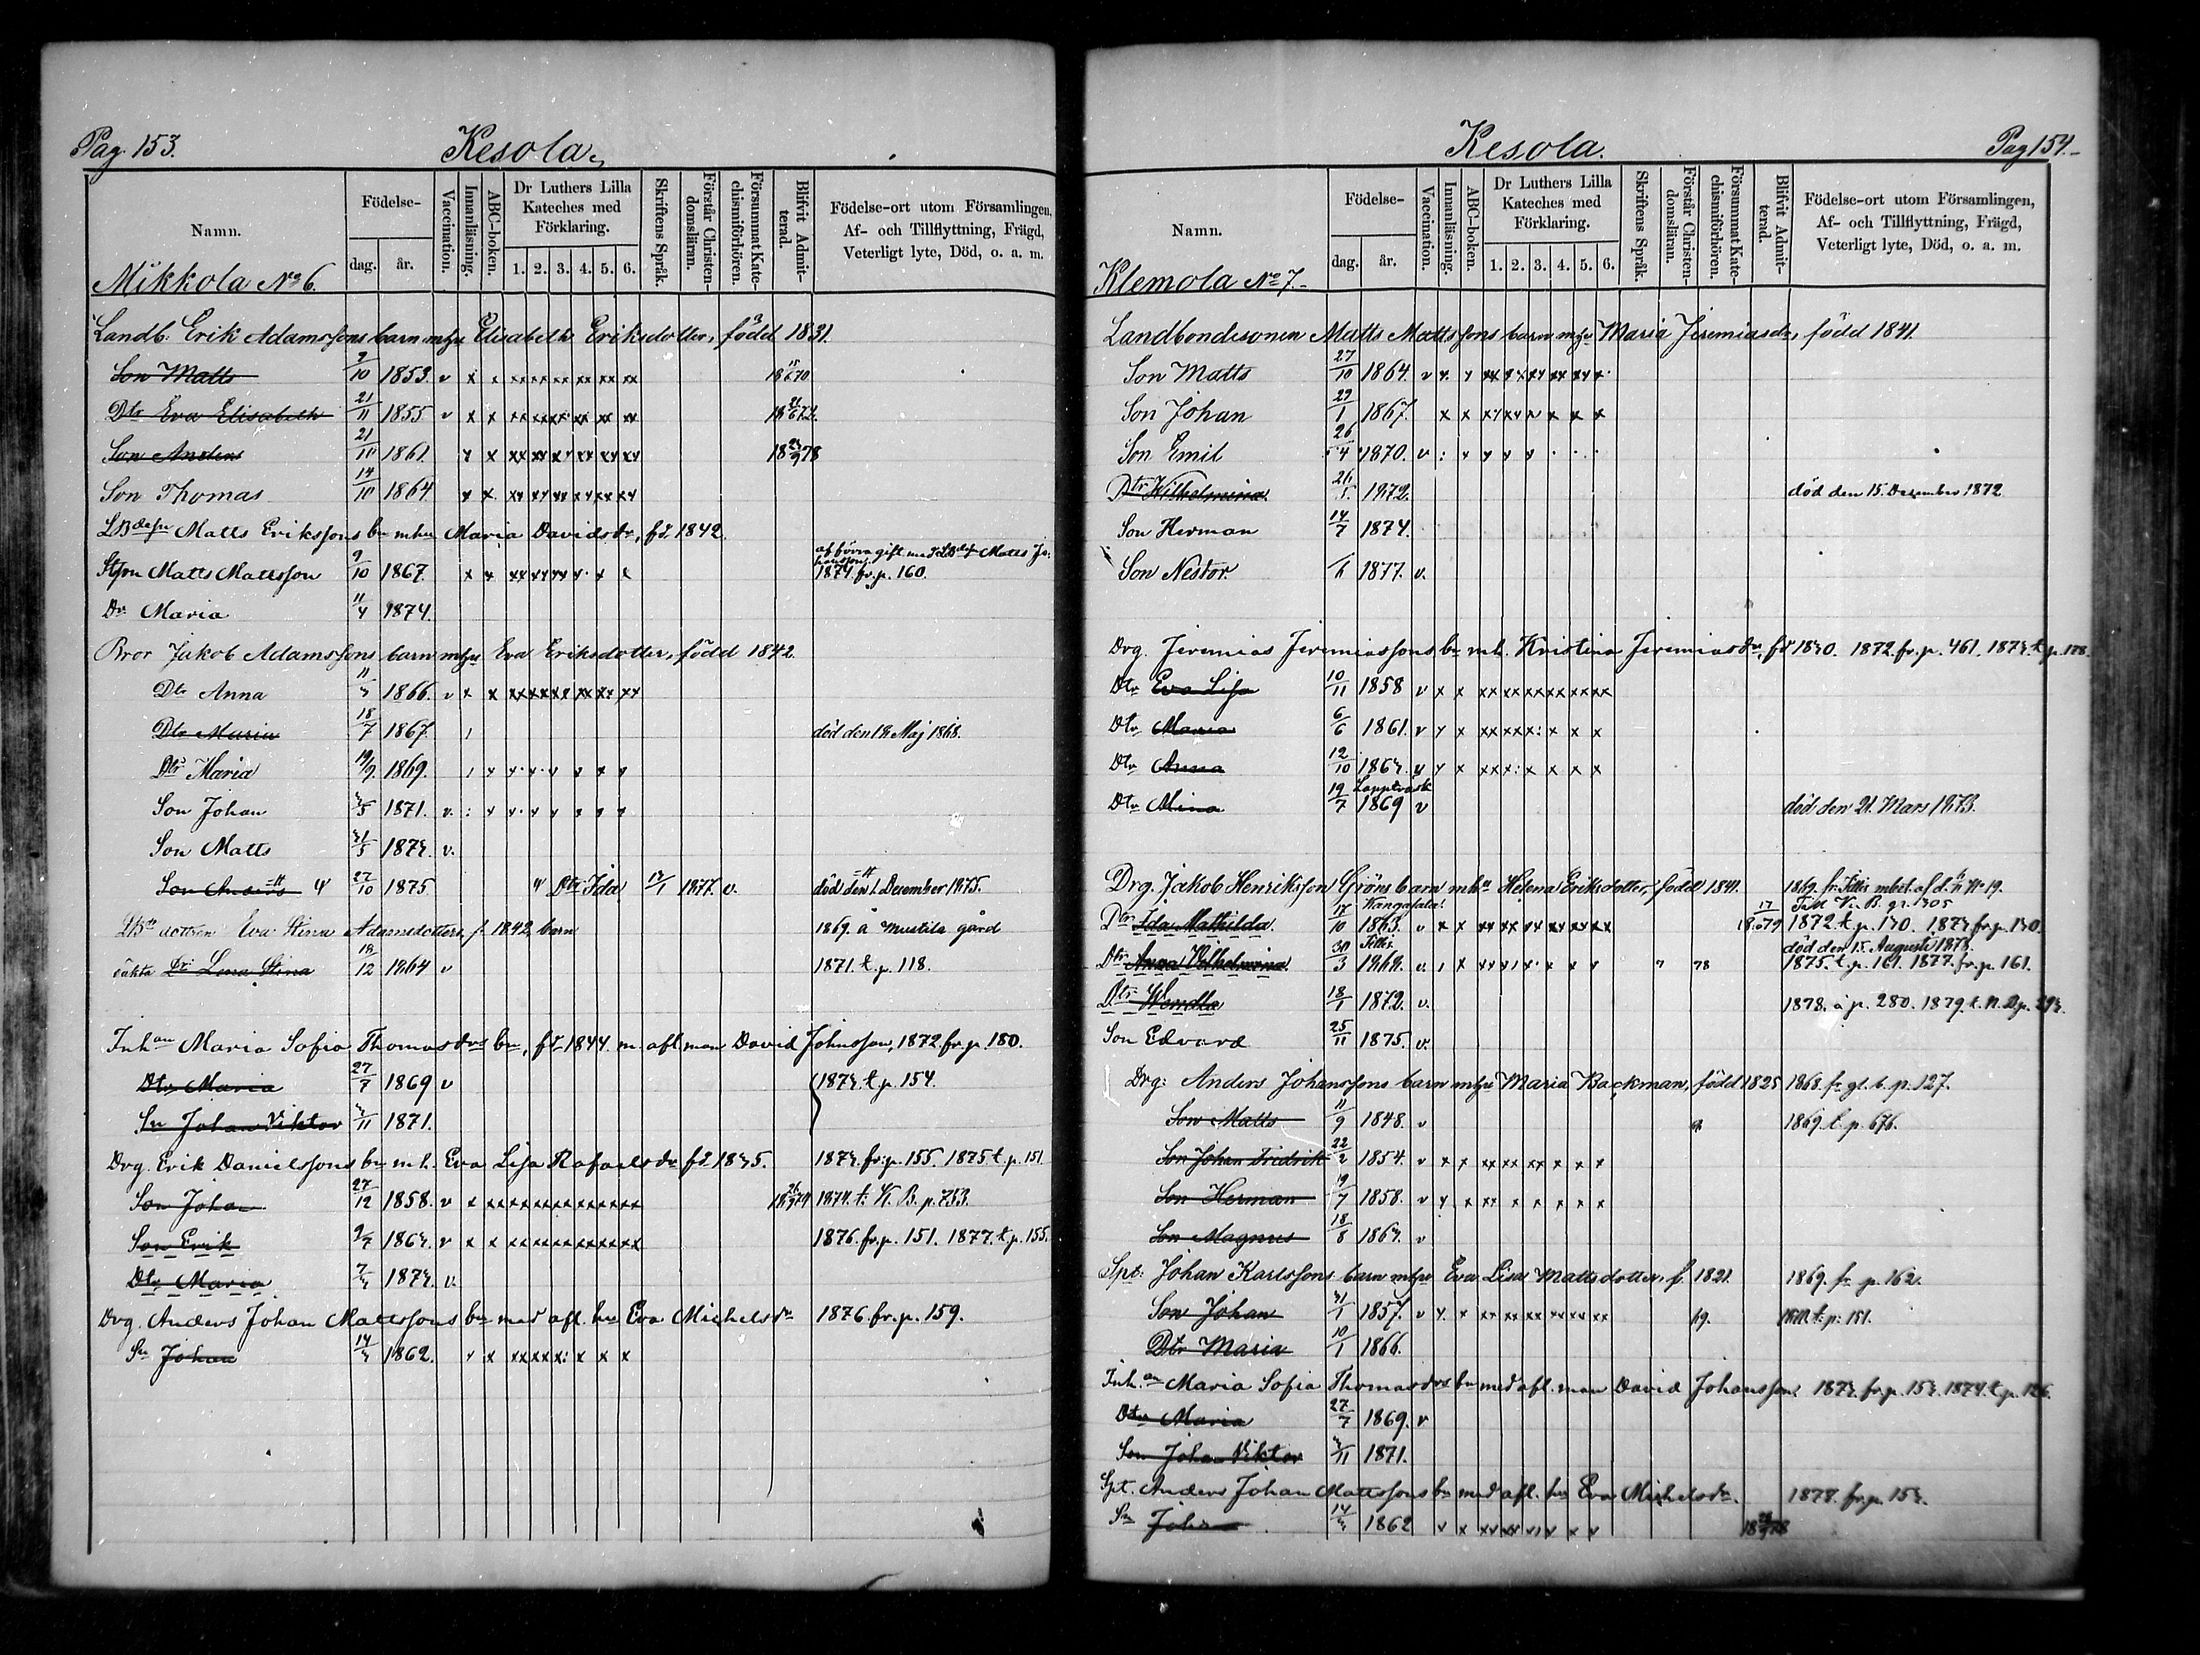 Pag. 153.
Kesola.
Namn.
Födelse-
dag.
år.
Vaccination.
Innanläsning.
ABC-boken.
Dr Luthers Lilla Kateches med Förklaring.
1. 2. 3. 4. 5. 6.
Skriftens Språk.
Förstår Christen-domsläran.
Försummat Kate-chismiförhören.
Blifvit Admit-terad.
Födelse-ort utom Församlingen,
Af- och Tillflyttning, Frägd,
Veterligt lyte, Död, o. a. m.
Mikkola No 6.
Landb. Erik Adamssons barn m hu Elisabeth Eriksdotter, född 1831.
Son Matts 9/10 1853. v x x xx xx xx xx xx xx
Dtr Eva Elisabeth 21/11 1855 v x x xx xx xx xx xx xx
Son Anders 21/11 1861. x x xx xx xx xx xx 1878
Son Thomas 14/10 1864 x x xx xx xx xx xx xx
LBdesn Matts Erikssons bn m hu Maria Davidsdr, fd. 1842.
Stsn Matts Mattsson 9/10 1867 x x xx xx xx x x x 1874. fr. p. 160.
Dr Maria 11/4 1874.
Bror Jakob Adamssons barn m hu Eva Eriksdotter, född 1842.
Dtr Anna 1866. v x x xx xx xx xx xx xx
Dtr Maria 18/7 1867. död den 19 Maj 1868.
Dtr Maria 19/9 1869.
Son Johan 3/5 1871. v.
Son Matts 31/5 1873. v.
Son Anders 27/10 1875 Dtr Ida 13/1 1877. v. död den 1. December 1875.
LBde dottren Eva Stina Adamsdotters f. 1842, barn 1869. å Mustila gård
oäkta Dr Lena Stina 18/12 1864 v 1871. t. p. 118.
Inhan Maria Sofia Thomasdrs bn, fd. 1844. m. afl. man David Johnsson, 1872. fr. p. 180.
Dtr Maria 27/7 1869 v 1873. t. p. 154.
Sn Johan Viktor 3/11 1871.
Drg. Erik Danielssons bn m. h. Eva Lisa Rafaelsdr fd. 1835. 1873. fr. p. 155. 1875 t. p. 151.
Son Johan 27/12 1858. v x xx xx xx xx xx xx 1874. t. K. B. p. 753.
Son Erik 9/7 1863. v x x xx xx xx xx xx xx 1876. fr. p. 151. 1877. t. p. 155.
Dtr Maria 7/3 1873. v.
Drg. Anders Johan Mattssons bn med afl. hu Eva Michelsdr 1876. fr. p. 159.
Sn Johan 14/3 1862. x x xx xx x: x x x
Kesola.
Pag 154.
Namn.
Födelse-
dag.
år.
Vaccination.
Innanläsning.
ABC-boken.
Dr Luthers Lilla Kateches med Förklaring.
1. 2. 3. 4. 5. 6.
Skriftens Språk.
Förstår Christen-domsläran.
Försummat Kate-chismiförhören.
Blifvit Admit-terad.
Födelse-ort utom Församlingen,
Af- och Tillflyttning, Frägd,
Veterligt lyte, Död, o. a. m.
Klemola No 7.
Landbondesonen Matts Mattssons barn m hu Maria Jeremiasdr, född 1841.
Son Matts 27/10 1864. v x x xx x xx xx xx x
Son Johan 29/1 1867. x x xx xx x x x x
Son Emil 26/4 1870. v
Dtr Wilhelmina 26/5 1872. död den 15. December 1872
Son Herman 14/7 1874.
Son Nestor 1877. v.
Drg. Jeremias Jeremiassons bn m. h. Kristina Jeremiasdr, fd 1830. 1872. fr. p. 461. 1873. t. p. 178.
Dtr Eva Lisa 10/11 1858 v x x xx xx xx xx xx xx
Dtr Maria 6/6 1861. v x x xx xx x: x x x
Dtr Anna 12/10 1863. v x x xx x: x x x x
Dtr Mina 19/7 Lappträsk 1869 v död den 21. Mars 1873.
Drg. Jakob Henriksson Gröns barn m hu Helena Eriksdotter, född 1841. 1869.
Dtr Ida Mathilda 17/10 1863. v x x xx xx xx xx xx xx 1879 1872 t. p. 130. 1873 fr. p. 130.
död den 15. Augusti 1878.
Dtr Anna Vilhelmina 30/3 1868. v. 78 1875. t. p. 161. 1877. fr. p. 161.
Dtr Wendla 18/1 1872. v. 1878. å p. 280. 1879
Son Edvard 25/11 1875. v.
Drg: Anders Johanssons barn m hu Maria Backman, född 1825 1868. fr gl. b. p. 127.
Son Matts 11/9 1848. v 1869 t. p. 676.
Son Johan Fredrik 22/2 1854. v x x xx xx xx x x x
Son Herman 19/7 1858. v x x xx x x x x x
Son Magnus 18/8 1863. v
Spt: Johan Karlssons barn m hu Eva Lisa Mattsdotter, f 1821. 1869. fr p. 162.
Son Johan 31/1 1857. v x. x xx xx xx xx xx xx t. p. 151.
Dtr Maria 10/1 1866.
Inh.an Maria Sofia Thomasdrs bn med afl. man David Johansson 1873. fr. p. 153. 1874. t. p. 126.
Dtr Maria 27/7 1869. v
Son Johan Viktor 3/11 1871.
Spt. Anders Johan Mattssons bn med afl. hu Eva Michelsdr. 1878. fr. p. 153.
Sn Johan 14/3 1862 v x xx xx x x x x 1878